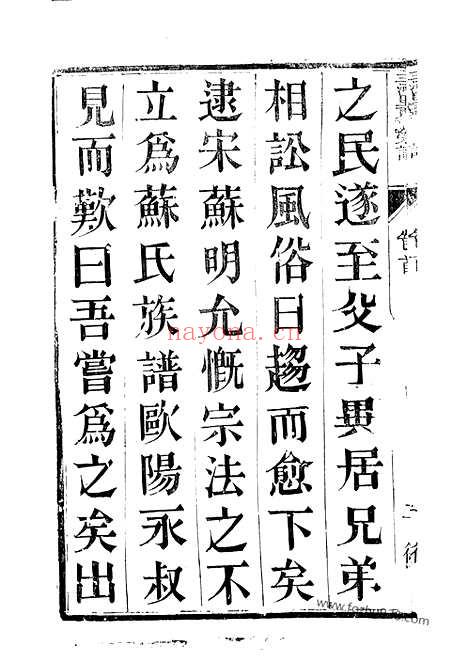 之民遂至父子異居兄弟
相訟風俗日趨而愈下矣
逮宋蘇明允慨宗法之不
立爲蘇氏族譜歐陽永叔
見而歎曰吾嘗爲之矣出
nayona.cn